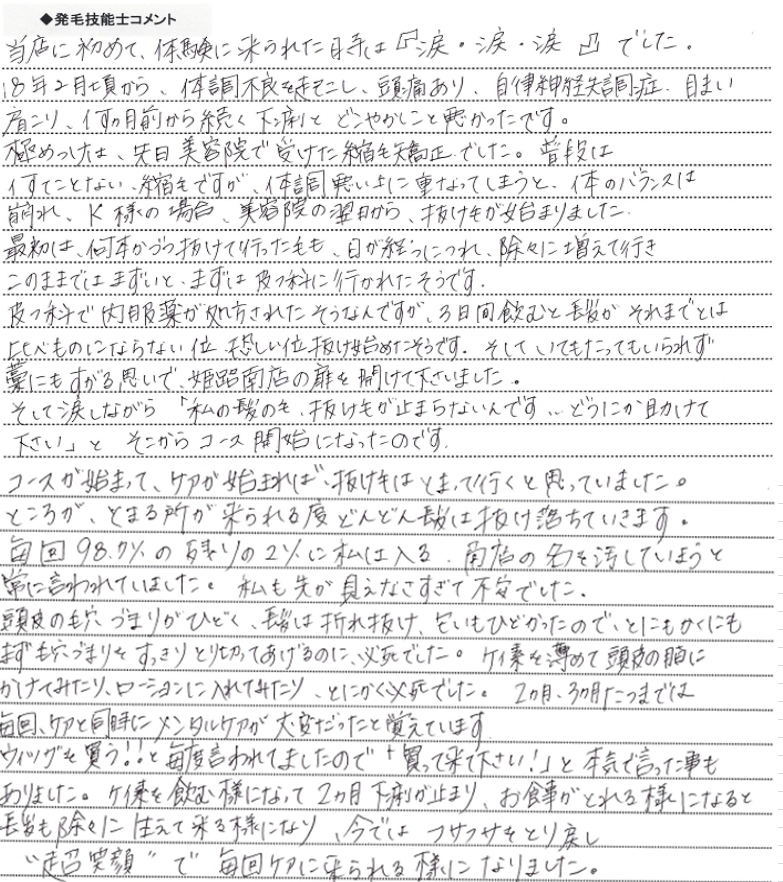 ◆発毛技能士コメント
当店に初めて、体験に来られた日寺は『涙・涙・涙』でした。
18年2月頃から、体調不良を起こし、頭痛あり、自律神経失調症、目まい
肩こり、何ヵ月前から続く下痢と どこやかしこと悪かったです。
極めつけは、先日美容院で受けた縮毛矯正でした。普段は
何てことない、縮毛ですが、体調悪い上に重なってしまうと、体のバランスは
崩れ、K様の場合、美容院の翌日から、抜け毛が始まりました。
最初は、何本かづつ抜けて行った毛も、日が経つにつれ、除々に増えて行き
このままではまずいと、まずは皮フ科に行かれたそうです。
皮フ科で内服薬が処方されたそうなんですが、3日間飲むと長髪が それまでとは
比べものにならない位 恐しい位抜け始めたそうです。そして いてもたってもいられず
藁にもすがる思いで、姫路南店の扉を開けて下さいました。
そして涙しながら「私の髪の毛、抜け毛が止まらないんです…どうにか助けて
下さい」と そこからコース開始になったのです。
コースが始まって、ケアが始まれば、抜け毛はとまって行くと思っていました。
ところが、とまる所が来られる度どんどん髪は抜け落ちていきます。
毎回 98.7%の残りの2%に私は入る、南店の名を汚してしまうと
常に言われていました。私も先が見えなさすぎて不安でした。
頭皮の毛穴づまりがひどく、髪は折れ抜け、匂いもひどかったので、とにもかくにも
まず毛穴づまりをすっきりとり切ってあげるのに、必死でした。ケイ素を薄めて頭皮の顔に
かけてみたり、ローションに入れてみたり、とにかく必死でした。2ヵ月、3ヵ月たつまでは
毎回、ケアと同時にメンタルケアが大変だったと覚えています
ウィッグを買う!!と毎度言われてましたので「買って来て下さい!」と本気で言った事も
ありました。ケイ素を飲む様になって2ヵ月下痢が止まり、お食事がとれる様になると
髪も除々に生えて来る様になり、今では フサフサをとり戻し
"超笑顔"で 毎回ケアに来られる様になりました。